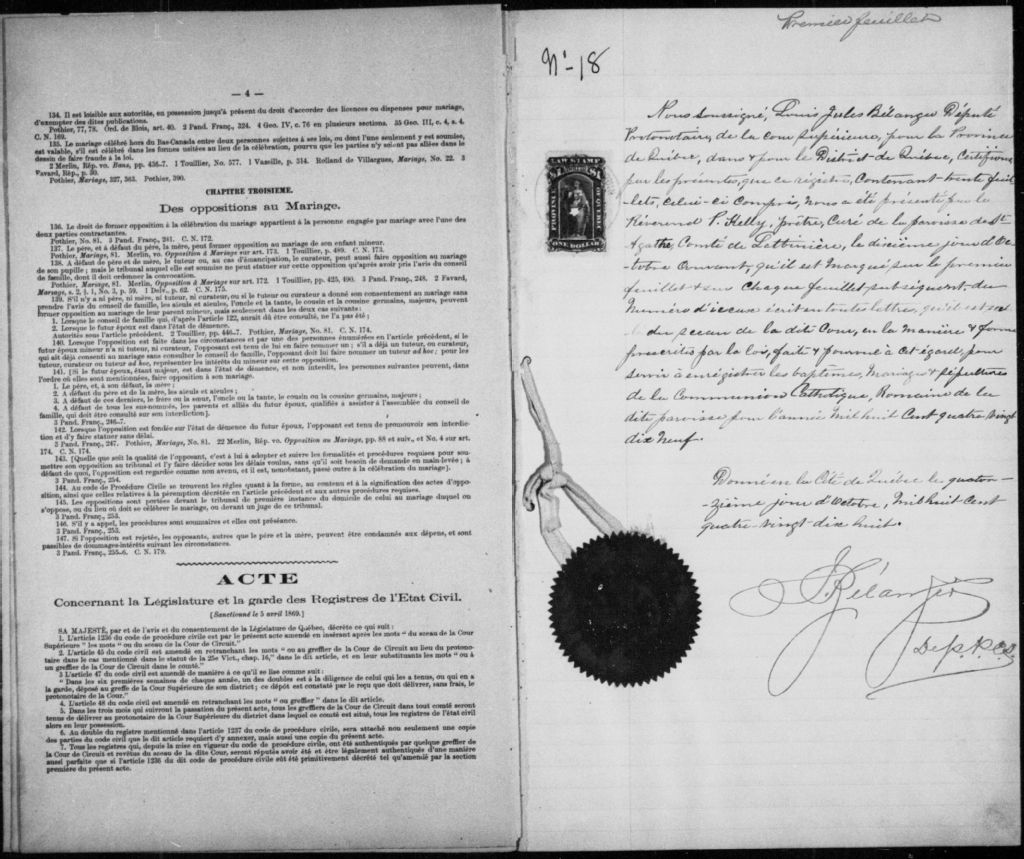 — 4 —
134. Il est loisible aux autorités, en possession jusqu'à présent du droit d'accorder des licences ou dispenses pour mariage,
d'exempter des dites publications.
Pothier, 77, 78. Ord. de Blois, art. 40. 2 Pand. Franç., 324. 4 Geo. IV, c. 76 en plusieurs sections. 35 Geo. III, c. 4, s. 4.
C. N. 169.
135. Le mariage célébré hors du Bas-Canada entre deux personnes sujettes à ses lois, ou dont l'une seulement y est soumise,
est valable, s'il est célébré dans les formes usitées au lieu de la célébration, pourvu que les parties n'y soient pas allées dans le
dessin de faire fraude à la loi.
2 Merlin, Rép. vo. Bans, pp. 456-7. 1 Touillier, No. 577. 1 Vazeille, p. 314. Rolland de Villargues, Mariage, No. 22. 3
Favard, Rép., p. 30.
Pothier, Mariage, 327, 363. Pothier, 390.
CHAPITRE TROISIEME.
Des oppositions au Mariage.
136. Le droit de former opposition à la célébration du mariage appartient à la personne engagée par mariage avec l'une des
deux parties contractantes.
Pothier, No. 81. 3 Pand. Franç., 241. C. N. 172.
137. Le père, et à défaut du père, la mère, peut former opposition au mariage de son enfant mineur.
Pothier, Mariage, 81. Merlin, vo. Opposition à Mariage sur art. 173. 1 Touillier, p. 489. C. N. 173.
138. A défaut de père et de mère, le tuteur ou, au cas d'émancipation, le curateur, peut aussi faire opposition au mariage
de son pupille; mais le tribunal auquel elle est soumise ne peut statuer sur cette opposition qu'après avoir pris l'avis du conseil
de famille, dont il doit ordonner la convocation.
Pothier, Mariage, 81. Merlin, Opposition à Mariage sur art. 172. 1 Touillier, pp. 425, 490. 3 Pand. Franç., 248. 2 Favard,
Mariage, s. 2, § 1, No. 3, p. 59. 1 Delv., p. 62. C. N. 175.
139. S'il n'y a ni père, ni mère, ni tuteur, ni curateur, ou si le tuteur ou curateur a donné son consentement au mariage sans
prendre l'avis du conseil de famille, les aïeuls et aïeules, l'oncle et la tante, le cousin et la cousine germains, majeurs, peuvent
former opposition au mariage de leur parent mineur, mais seulement dans les deux cas suivants:
1. Lorsque le conseil de famille qui, d'après l'article 122, aurait dû être consulté, ne l'a pas été;
2. Lorsque le futur époux est dans l'état de démence.
Autorités sous l'article précédent. 2 Touillier, pp. 446-7. Pothier, Mariage, No. 81. C. N. 174.
140. Lorsque l'opposition est faite dans les circonstances et par une des personnes énumérées en l'article précédent, si le
futur époux mineur n'a ni tuteur, ni curateur, l'opposant est tenu de lui en faire nommer un; s'il a déjà un tuteur, ou curateur
qui ait déjà consenti au mariage sans consulter le conseil de famille, l'opposant doit lui faire nommer un tuteur ad hoc; pour les
tuteur, curateur ou tuteur ad hoc, représenter les intérêts du mineur sur cette opposition.
141. [Si le futur époux, étant majeur, est dans l'état de démence, et non interdit, les personnes suivantes peuvent, dans
l'ordre où elles sont mentionnées, faire opposition à son mariage.
1. Le père, et, à son défaut, la mère;
2. A défaut du père et de la mère, les aïeuls et aïeules;
3. A défaut de ces derniers, le frère ou la sœur, l'oncle ou la tante, le cousin ou la cousine germains, majeurs;
4. A défaut de tous les sus-nommés, les parents et alliés du futur époux, qualifiés à assister à l'assemblée du conseil de
famille, qui doit être consulté sur son interdiction].
3 Pand. Franç., 246-7.
142. Lorsque l'opposition est fondée sur l'état de démence du futur époux, l'opposant est tenu de promouvoir son interdic-
tion et d'y faire statuer sans délai.
3 Pand. Franç., 247. Pothier, Mariage, No. 81. 22 Merlin, Rép. vo. Opposition au Mariage, pp. 88 et suiv., et No. 4 sur art.
174. C. N. 174.
143. [Quelle que soit la qualité de l'opposant, c'est à lui à adopter et suivre les formalités et procédures requises pour sou-
mettre son opposition au tribunal et l'y faire décider sous les délais voulus, sans qu'il soit besoin de demande en main-levée; à
défaut de quoi, l'opposition est regardée comme non avenu, et il est, nonobstant, passé outre à la célébration du mariage].
3 Pand. Franç., 254.
144. Au code de Procédure Civile se trouvent les règles quant à la forme, au contenu et à la signification des actes d'oppo-
sition, ainsi que celles relatives à la péremption décrétée en l'article précédent et aux autres procédures requises.
145. Les oppositions sont portées devant le tribunal de première instance du domicile de celui au mariage duquel on
s'oppose, ou du lieu où doit se célébrer le mariage, ou devant un juge de ce tribunal.
3 Pand. Franç., 253.
146. S'il y a appel, les procédures sont sommaires et elles ont préséance.
3 Pand. Franç., 253.
147. Si l'opposition est rejetée, les opposants, autres que le père et la mère, peuvent être condamnés aux dépens, et sont
passibles de dommages-intérêts suivant les circonstances.
3 Pand. Franç., 255-6. C. N. 179.
ACTE
Concernant la Législature et la garde des Registres de l'Etat Civil.
[Sanctionné le 5 avril 1869.]
SA MAJESTÉ, par et de l'avis et du consentement de la Législature de Québec, décrète ce qui suit:
1. L'article 1236 du code de procédure civile est par le présent acte amendé en insérant après les mots "du sceau de la Cour
Supérieure" les mots "ou du sceau de la Cour de Circuit."
2. L'article 45 du code civil est amendé en retranchant les mots "ou au greffier de la Cour de Circuit au lieu du protono-
taire dans le cas mentionné dans le statut de la 25e Vict., chap. 16," dans le dit article, et en leur substituants les mots "ou à
un greffier de la Cour de Circuit dans le comté."
3 L'article 47 du code civil est amendé de manière à ce qu'il se lise comme suit:
"Dans les six premières semaines de chaque année, un des doubles est à la diligence de celui qui les a tenus, ou qui en a
la garde, déposé au greffe de la Cour Supérieure de son district; ce dépôt est constaté par le reçu que doit délivrer, sans frais, le
protonotaire de la Cour."
4. L'article 48 du code civil est amendé en retranchant les mots "ou greffier" dans le dit article.
5. Dans les trois mois qui suivront la passation du présent acte, tous les greffiers de la Cour de Circuit dans tout comté seront
tenus de délivrer au protonotaire de la Cour Supérieure du district dans lequel ce comté est situé, tous les registres de l'état civil
alors en leur possession.
6. Au double du registre mentionné dans l'article 1237 du code de procédure civile, sera attaché non seulement une copie
des parties du code civil que le dit article requiert d'y annexer, mais aussi une copie du présent acte.
7. Tous les registres qui, depuis la mise en vigueur du code de procédure civile, ont été authentiqués par quelque greffier de
la Cour de Circuit et revêtus du sceau de la dite Cour, seront réputés avoir été et être légalement authentiqués d'une manière
aussi parfaite que si l'article 1236 du dit code de procédure civile eût été primitivement décrété tel qu'amendé par la section
première du présent acte.
Premier feuillet
No - 18
LAW STAMP
$1 $1
PROVINCE OF QUEBEC
ONE DOLLAR
Nous soussigné, Louis Jules Bélanger Député
Protonotaire, de la Cour Supérieure, pour la Province
de Québec, dans & pour le District de Québec, Certifions
par les présentes, que ce régistre, Contenant trente feuil-
-lets, celui-ci Compris, nous a été présenté par le
Révérend P. Kelly, prêtre, Curé de la paroisse de Ste
Agathe, Comté de Lotbinière, le dixième jour d'Oc-
-tobre Courant, qu'il est Marqué sur le premier
feuillet & sur Chaque feuillet subséquent, du
Numéro d'iceux écrit en toutes lettres, qu'il est
du sceau de la dite Cour, en la Manière & forme
prescrites par la loi, faite & fournie à cet égard, pour
servir à enrégistrer les baptêmes, Mariages & sépultures
de la Communion Catholique, Romaine de la
dite paroisse pour l'année Mil huit Cent quatre vingt
dix Neuf.
Donné en la Cité de Québec le quator-
-zième jour d'Octobre, Mil huit Cent
quatre-vingt-dix huit.
Bélanger
Dep.